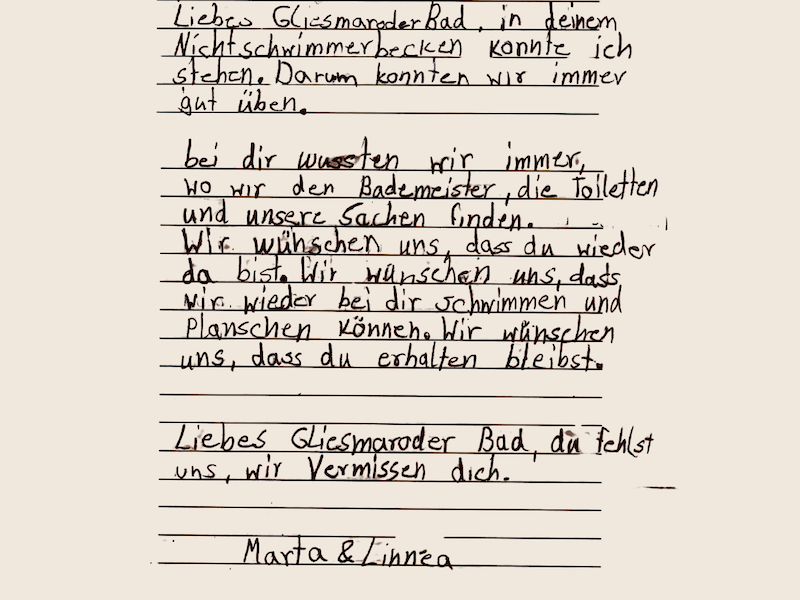 Liebes Gliesmaroder Bad, in deinem
Nichtschwimmerbecken konnte ich
stehen. Darum konnten wir immer
gut üben.
bei dir wussten wir immer,
wo wir den Bademeister, die Toiletten
und unsere Sachen finden.
Wir wünschen uns, dass du wieder
da bist. Wir wünschen uns, dass
wir wieder bei dir schwimmen und
Planschen können. Wir wünschen
uns, dass du erhalten bleibst.
Liebes Gliesmaroder Bad, du fehlst
uns, wir Vermissen dich.
Marta & Linnea